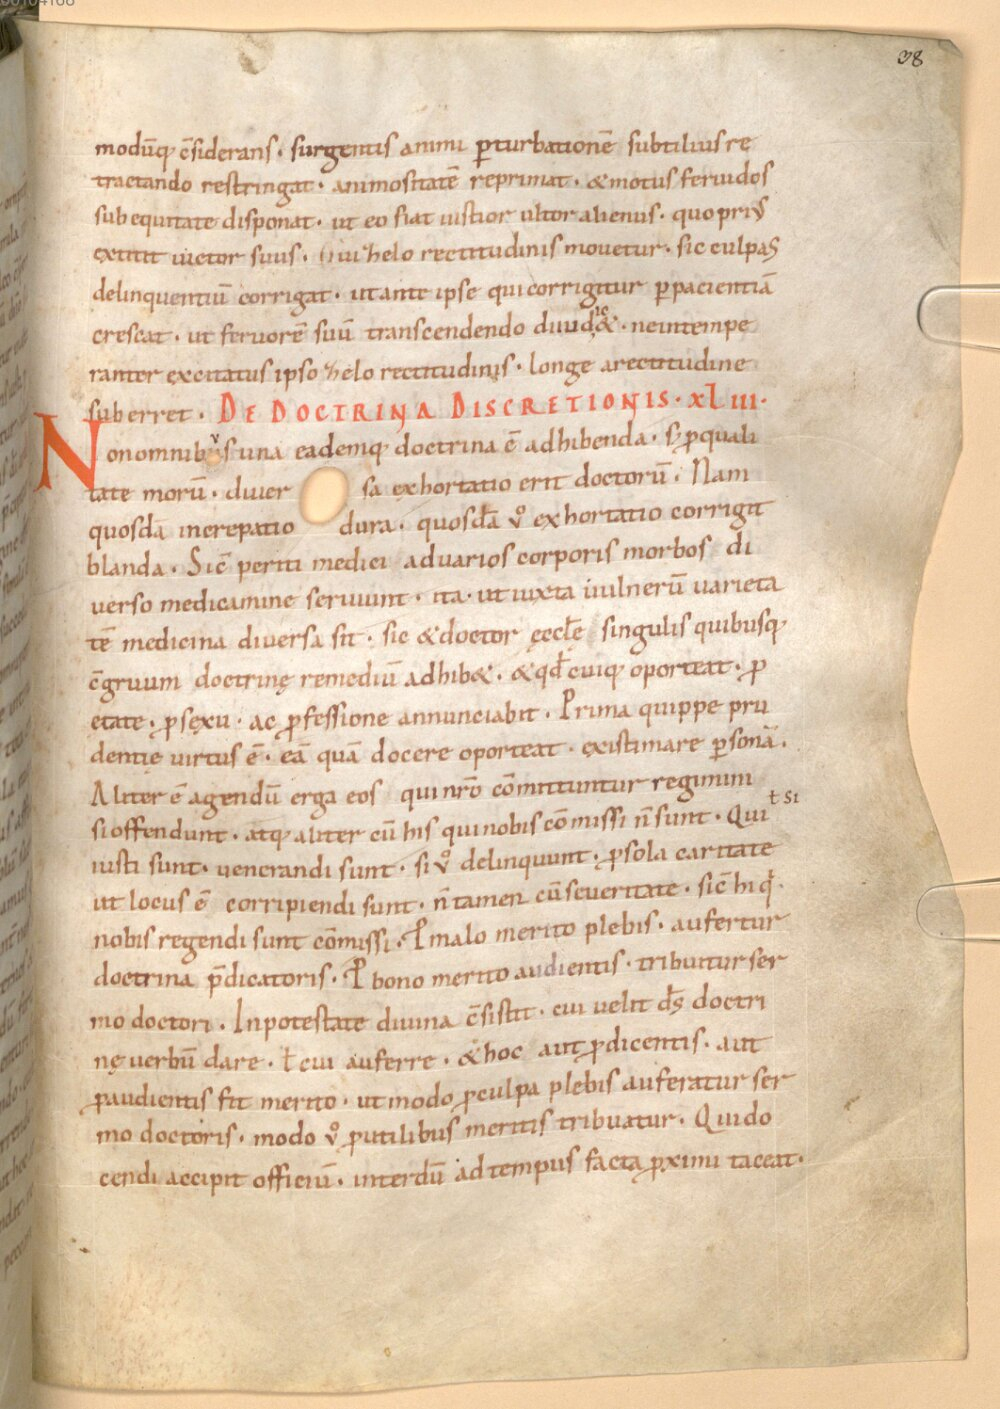 38
modūq; c̄siderans · surgentis animi ꝑturbationē subtilius re
tractando restringat · animositatē reprimat · & motus feruidos
sub equitate disponat · ut eo fiat iustior ultor alienus · quo prius
extitit uictor suus · Qui zelo rectitudinis mouetur · sic culpas
delinquentiū corrigat · ut ante ipse qui corrigitur ꝑ pacientiā
crescat · ut feruorē suū transcendendo diiudic& · ne intempe
ranter excitatus ipso zelo rectitudinis · longe a rectitudine
suberret · DE DOCTRINA DISCRETIONIS · XLIII ·
Non omnibus una eademq; doctrina ē adhibenda · s; ꝓ quali
tate morū · diuer sa exhortatio erit doctorū · Nam
quosdā increpatio dura · quosdā ů exhortatio corrigit
blanda · Sic̄ periti medici ad uarios corporis morbos di
uerso medicamine seruiunt · ita · ut iuxta uulnerū uarieta
tē medicina diuersa sit · sic & doctor ęcclę̄ singulis quibusq;
c̄gruum doctrinę remediū adhib& · & qđ cuiq; oporteat · ꝓ
etate · ꝓ sexu · ac ꝓfessione annunciabit · Prima quippe pru
dentię uirtus ē · eā quā docere oporteat · existimare ꝑsonā ·
Aliter ē agendū erga eos qui nr̄o cōmittuntur regimini
si offendunt · atq; aliter cū his qui nobis cōmissi n̄ sunt · Qui ł si
iusti sunt · uenerandi sunt · si ů delinquunt · ꝓ sola caritate
ut locus ē corripiendi sunt · n̄ tamen cū seueritate · sic̄ hi q̇
nobis regendi sunt cōmissi · P malo merito plebis · aufertur
doctrina p̄dicatoris · P bono merito audientis · tribuitur ser
mo doctori · In potestate diuina c̄sistit · cui uelit dš doctri
nę uerbū dare · ł cui auferre · & hoc aut ꝓ dicentis · aut
ꝓ audientis fit merito · ut modo ꝓ culpa plebis auferatur ser
mo doctoris · modo ů ꝓ utilibus meritis tribuatur · Qui do
cendi accipit officiū · interdū ad tempus facta ꝓximi taceat ·